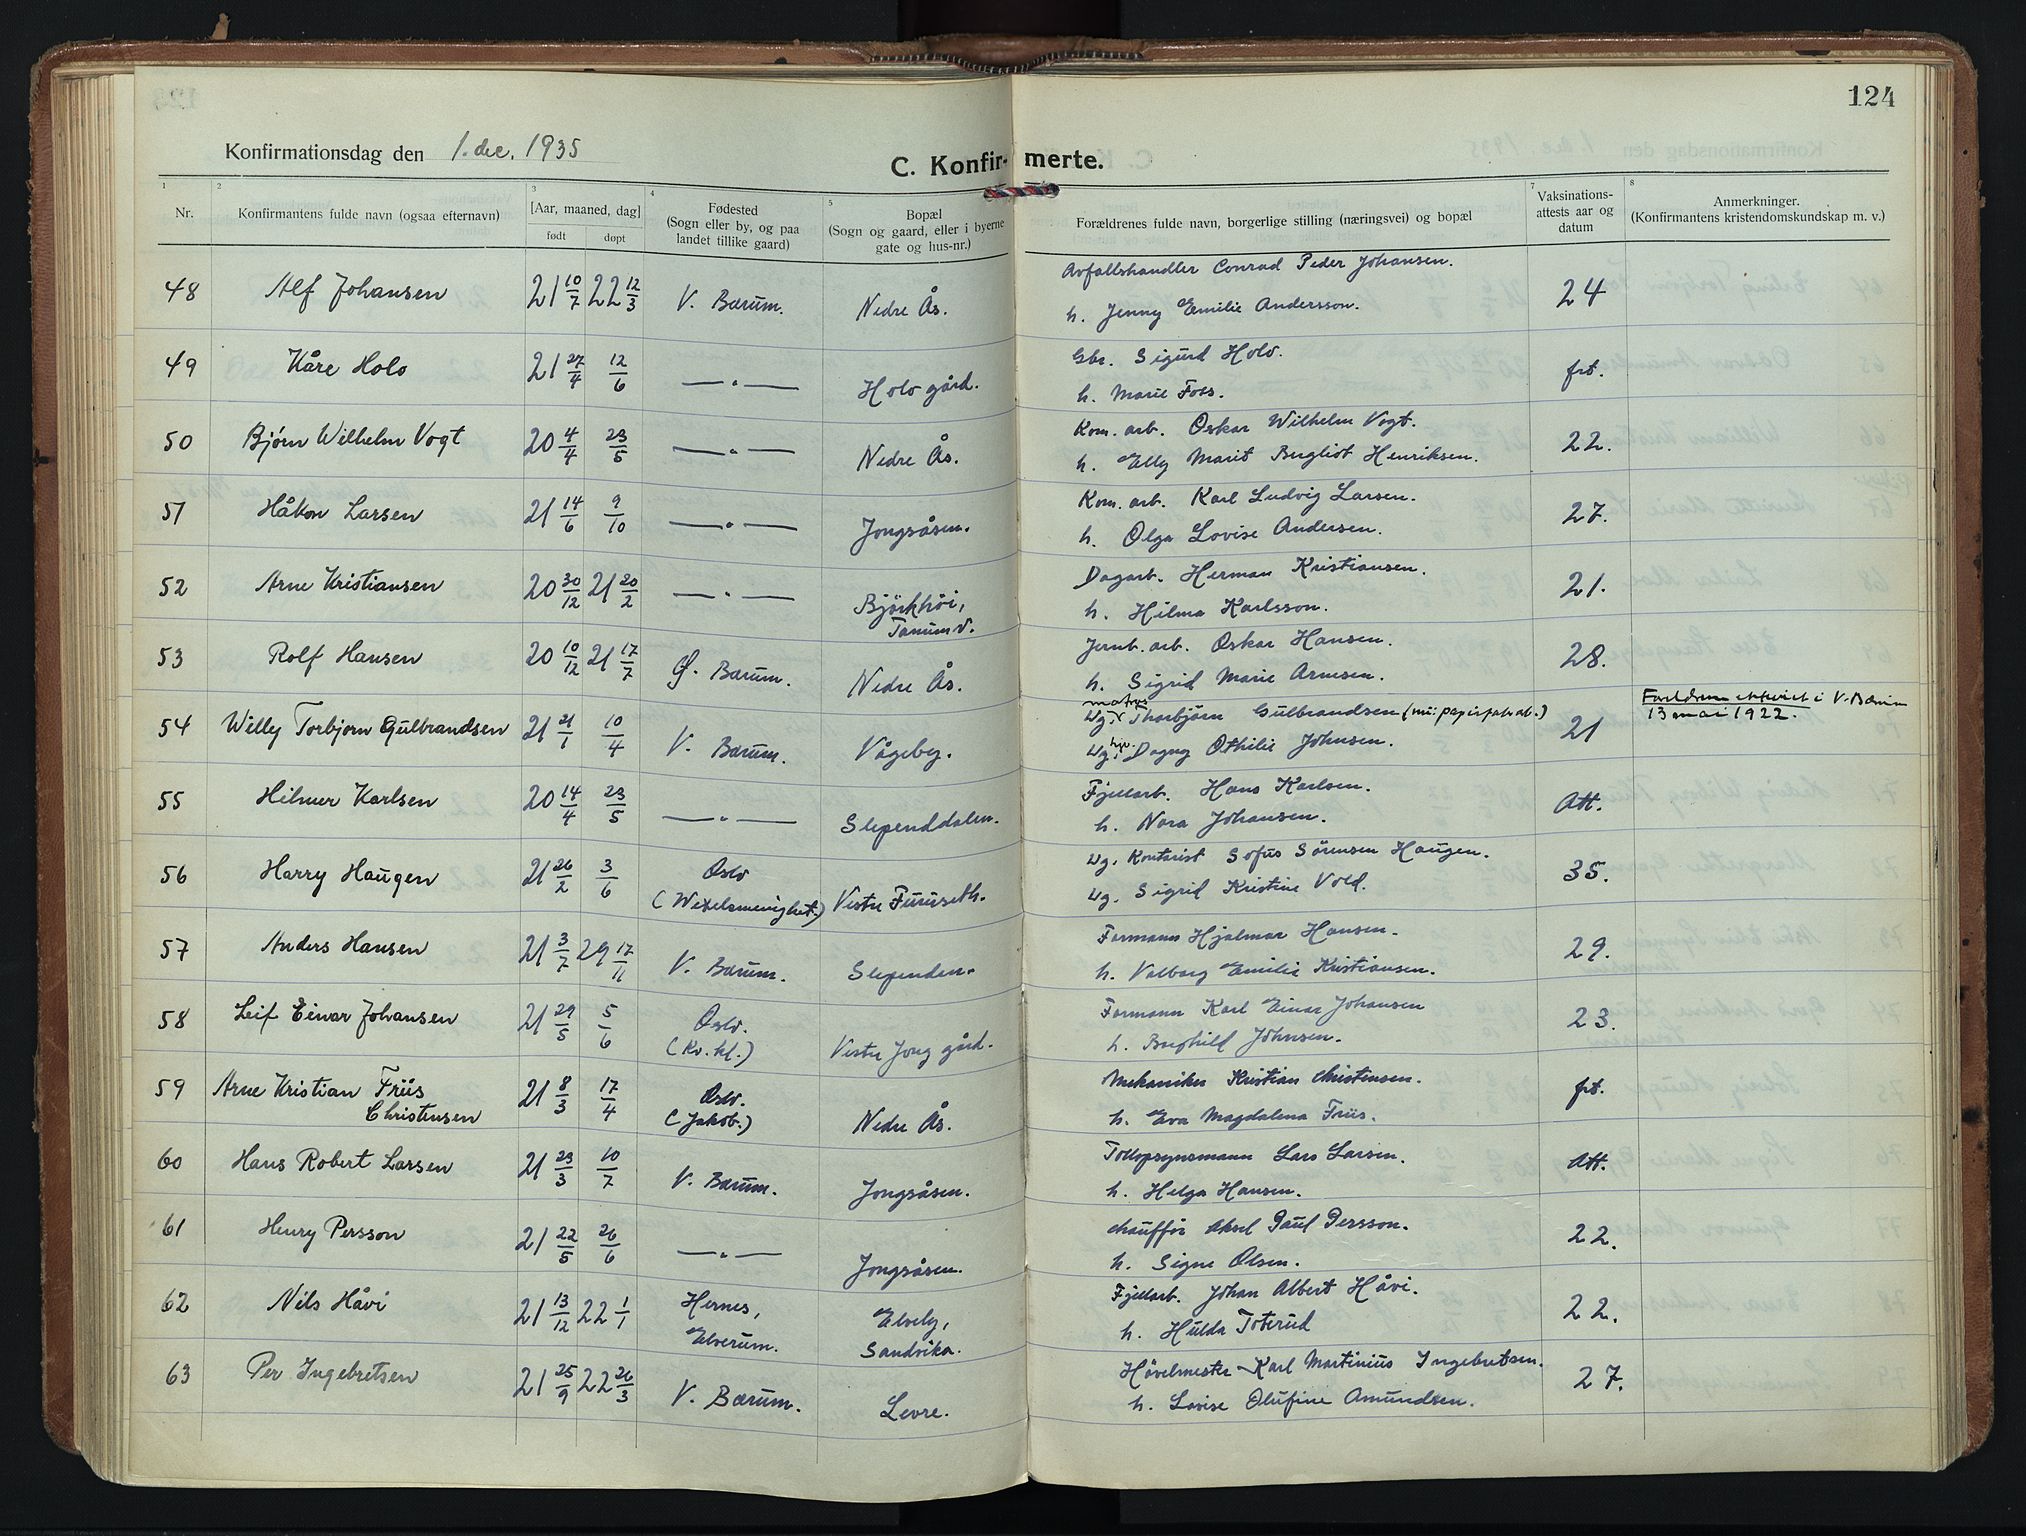 124
Konfirmationsdag den 1. dec. 1935
C. Konfirmerte.
1 2 3 4 5 7 8
Nr. Konfirmantens fulde navn (ogsaa efternavn) [Aar, maaned, dag] født døpt Fødested (Sogn eller by, og paa landet tillike gaard) Bopæl (Sogn og gaard, eller i byerne gate og hus-nr.) Forældrenes fulde navn, borgerlige stilling (næringsvei) og bopæl Vaksinationsattests aar og datum Anmerkninger. (Konfirmantens kristendomskundskap m. v.)
48 Alf Johansen 21 10/7 22 12/3 V. Bærum. Nedre Ås. Avfallshandler Conrad Peder Johansen. 24
h. Jenny Emilie Andersson.
49 Kåre Holo 21 27/4 12/6 —„— Holo gård. Gbr. Sigurd Holo. frt.
h. Marie Foss.
50 Bjørn Wilhelm Vogt 20 4/4 23/5 —„— Nedre Ås. Kom. arb. Oskar Wilhelm Vogt. 22.
h. Elly Marit Bergliot Henriksen.
51 Håkon Larsen 21 14/6 9/10 —„— Jongsåsen. Kom. arb. Karl Ludvig Larsen. 27.
h. Olga Lovise Andersen.
52 Arne Kristiansen 20 30/12 21 20/2 —„— Bjørkhöi, Tanum v. Dagarb. Herman Kristiansen. 21.
h. Hilma Karlsson.
53 Rolf Hansen 20 10/12 21 17/7 Ø. Bærum. Nedre Ås. Jernb. arb. Oskar Hansen. 28.
h. Sigrid Marie Arnesen.
54 Willy Torbjorn Gulbrandsen 21 21/1 10/4 V. Bærum. Vågeby. Ug. matros Thorbjørn Gulbrandsen 21 Foreldrene ekteviet i V. Bærum 13 mai 1922.
Ug. Dagny Othilie Johnsen.
55 Hilmer Karlsen 20 14/4 23/5 —„— Slependdalen. Fjellarb. Hans Karlsen. Att.
h. Nora Johansen.
56 Harry Haugen 21 26/2 3/6 Oslo (Wexelsmenighet.) Vestre Fururseth. Ug. Kontorist Sofus Sörensen Haugen. 35.
Ug. Sigrid Kristine Vold.
57 Anders Hansen 21 3/7 29 17/11 V. Bærum. Slependen. Formann Hjalmar Hansen. 29.
h. Valborg Emilie Kristiansen.
58 Leif Einar Johansen 21 29/5 5/6 Oslo. (Kv. kl.) Vestre Jong gård. Formann Karl Einar Johansen 23.
h. Borghild Johnsen.
59 Arne Kristian Friis Christensen 21 8/3 17/4 Oslo. (Jakob.) Nedre Ås. Mekaniker Kristian Christensen. frt.
h. Eva Magdalena Friis.
60 Hans Robert Larsen 21 23/3 10/7 V. Bærum. Jongsåsen. Tollopsynsmann Lars Larsen. Att.
h. Helga Hansen.
61 Henry Persson 21 22/5 26/6 —„— Jongsåsen. Chauffør Aksel Paul Persson. 22.
h. Signe Olsen.
62 Nils Håvi 21 13/12 22 1/1 Hernes, Elverum. Elvely, Sandvika. Fjellarb. Johan Albert Håvi. 22.
h. Hulda Toterud
63 Per Ingebretsen 21 25/9 22 26/3 V. Bærum. Levre. Hövelmester Karl Martinius Ingebretsen. 27.
h. Lovise Olufine Amundsen.